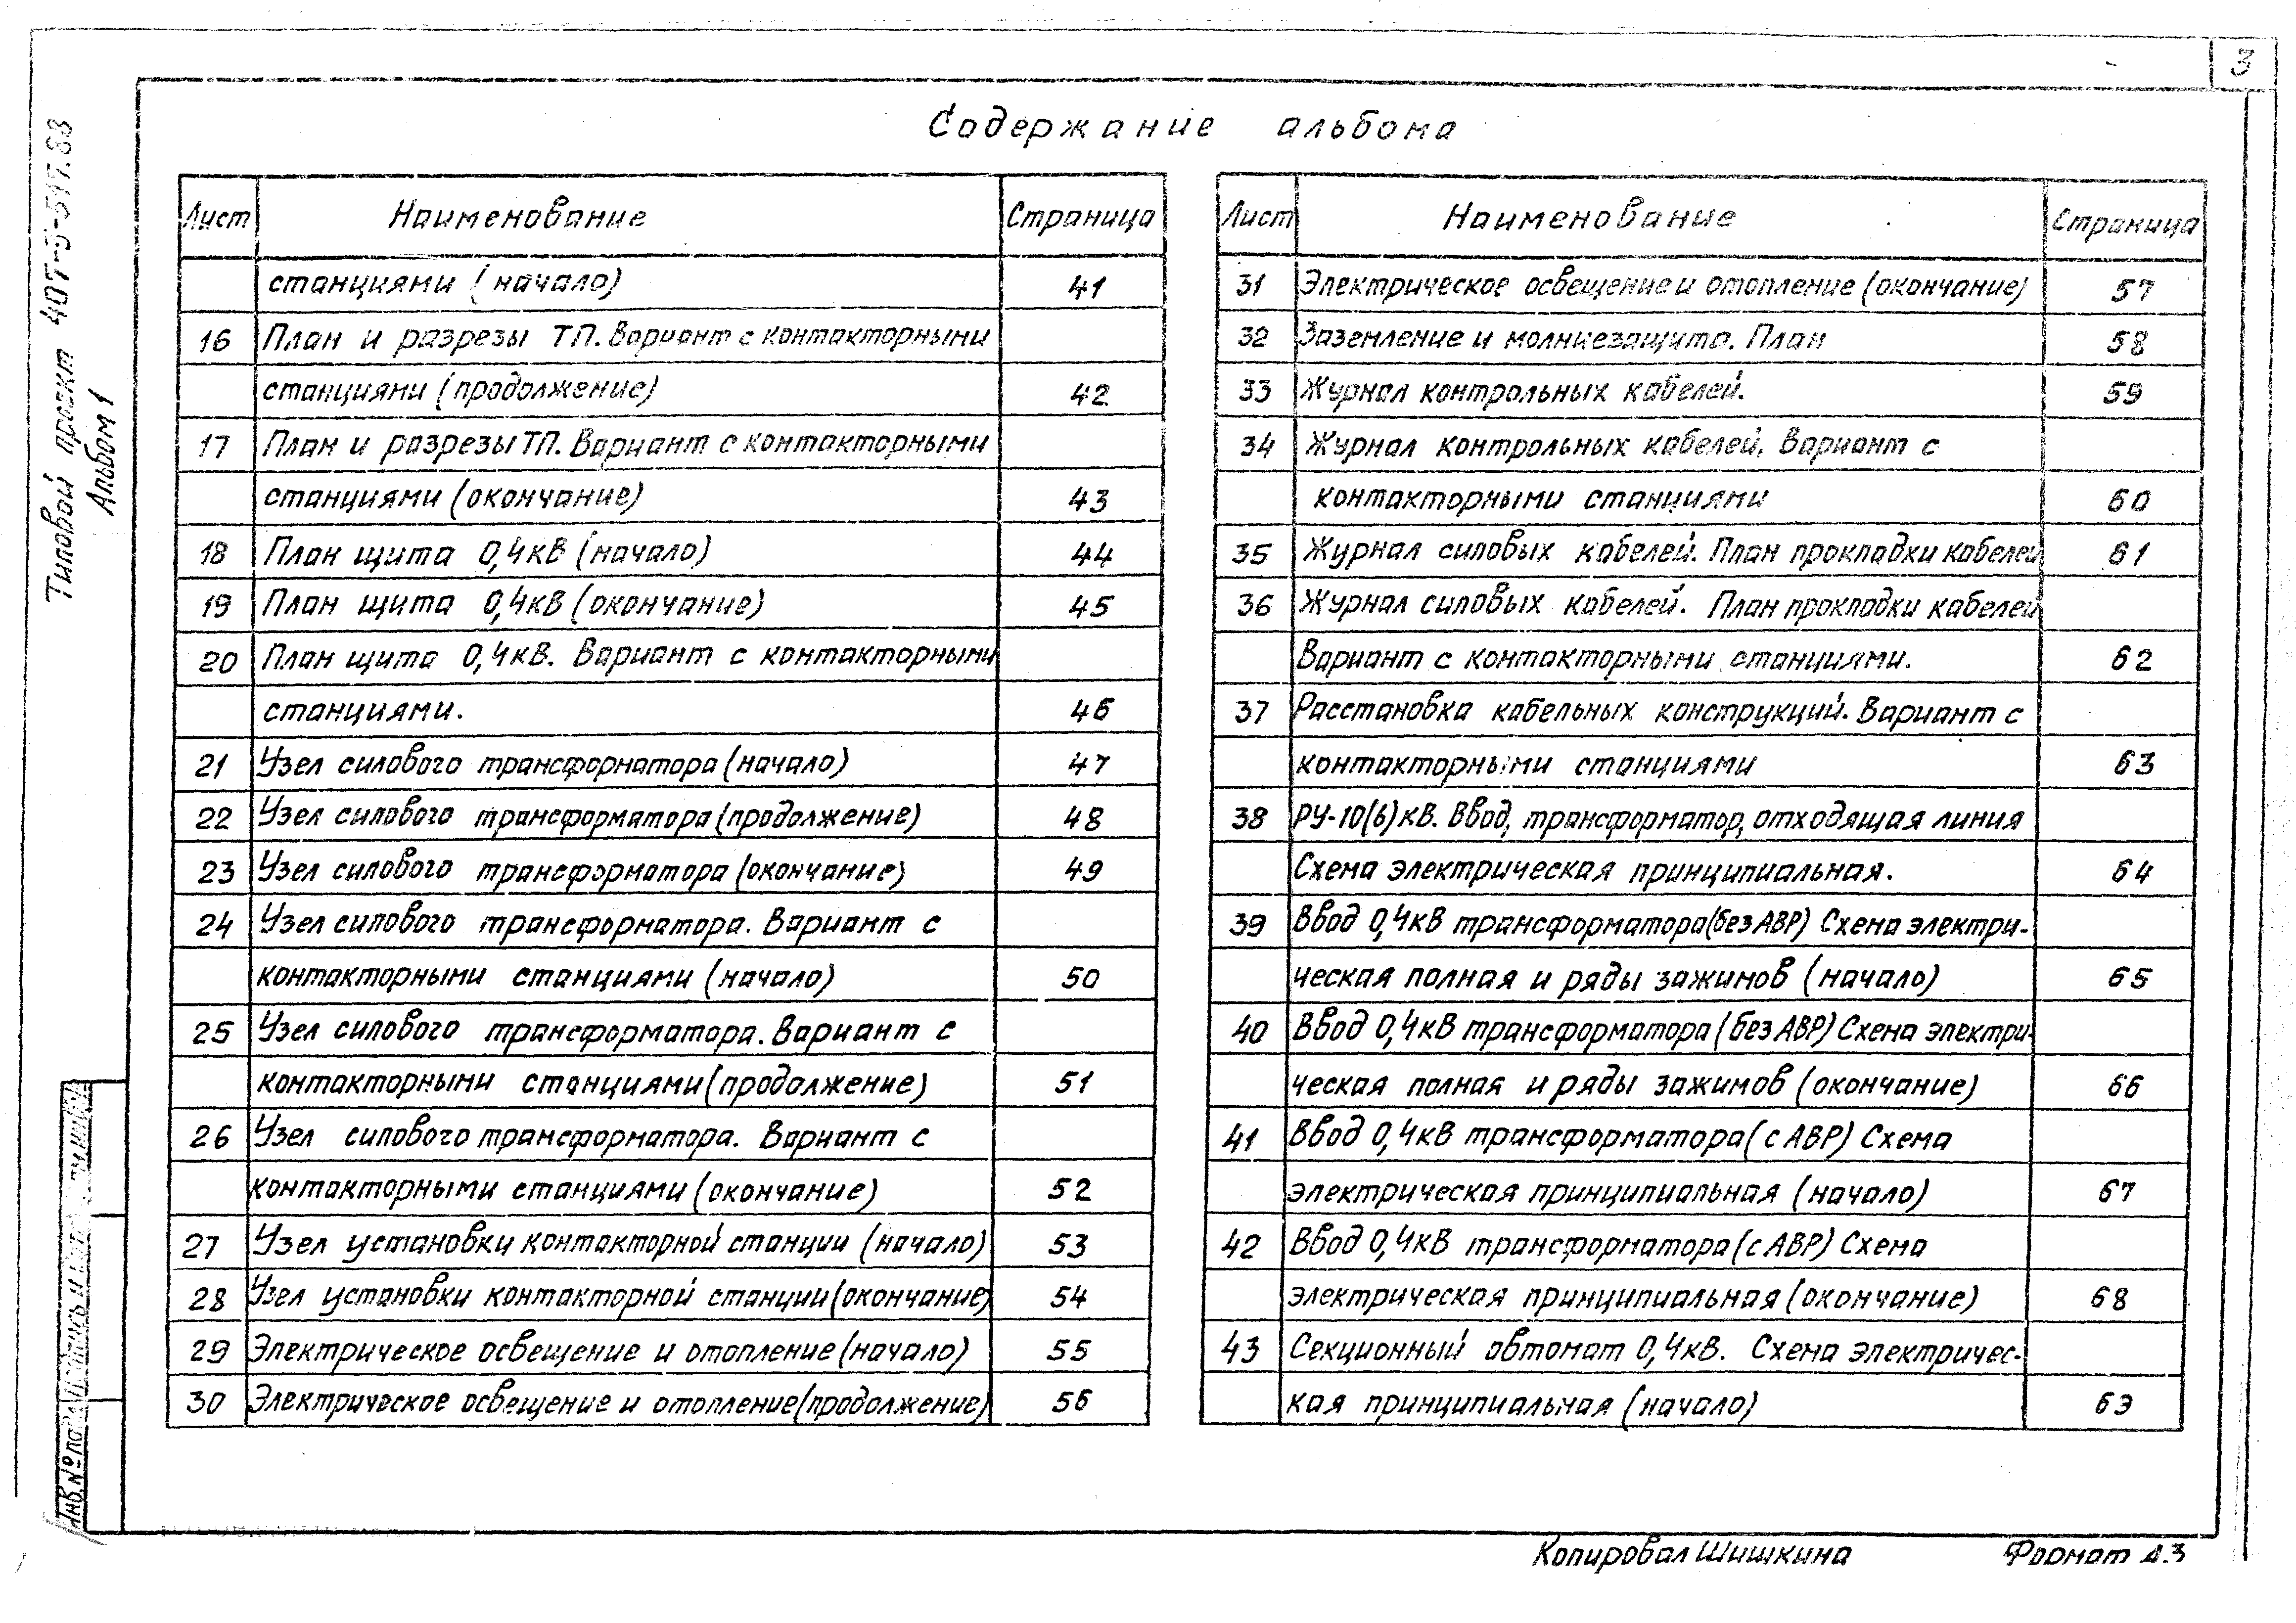 3
Содержание альбома
Типовой проект 407-3-517.88
Альбом 1
Лист Наименование Страница
станциями (начало) 41
16 План и разрезы ТП. Вариант с контакторными
станциями (продолжение) 42
17 План и разрезы ТП. Вариант с контакторными
станциями (окончание) 43
18 План щита 0,4кВ (начало) 44
19 План щита 0,4кВ (окончание) 45
20 План щита 0,4кВ. Вариант с контакторными
станциями. 46
21 Узел силового трансформатора (начало) 47
22 Узел силового трансформатора (продолжение) 48
23 Узел силового трансформатора (окончание) 49
24 Узел силового трансформатора. Вариант с
контакторными станциями (начало) 50
25 Узел силового трансформатора. Вариант с
контакторными станциями (продолжение) 51
26 Узел силового трансформатора. Вариант с
контакторными станциями (окончание) 52
27 Узел установки контакторной станции (начало) 53
28 Узел установки контакторной станции (окончание) 54
29 Электрическое освещение и отопление (начало) 55
30 Электрическое освещение и отопление (продолжение) 56
Лист Наименование Страница
31 Электрическое освещение и отопление (окончание) 57
32 Заземление и молниезащита. План 58
33 Журнал контрольных кабелей. 59
34 Журнал контрольных кабелей. Вариант с
контакторными станциями 60
35 Журнал силовых кабелей. План прокладки кабелей 61
36 Журнал силовых кабелей. План прокладки кабелей
Вариант с контакторными станциями. 62
37 Расстановка кабельных конструкций. Вариант с
контакторными станциями 63
38 РУ-10(6)кВ. Ввод, трансформатор, отходящая линия
Схема электрическая принципиальная. 64
39 Ввод 0,4кВ трансформатора (без АВР) Схема электри-
ческая полная и ряды зажимов (начало) 65
40 Ввод 0,4кВ трансформатора (без АВР) Схема электри-
ческая полная и ряды зажимов (окончание) 66
41 Ввод 0,4кВ трансформатора (с АВР) Схема
электрическая принципиальная (начало) 67
42 Ввод 0,4кВ трансформатора (с АВР) Схема
электрическая принципиальная (окончание) 68
43 Секционный автомат 0,4кВ. Схема электричес-
кая принципиальная (начало) 69
Инв.№ подл. Подпись и дата
Копировал Шишкина Формат А3